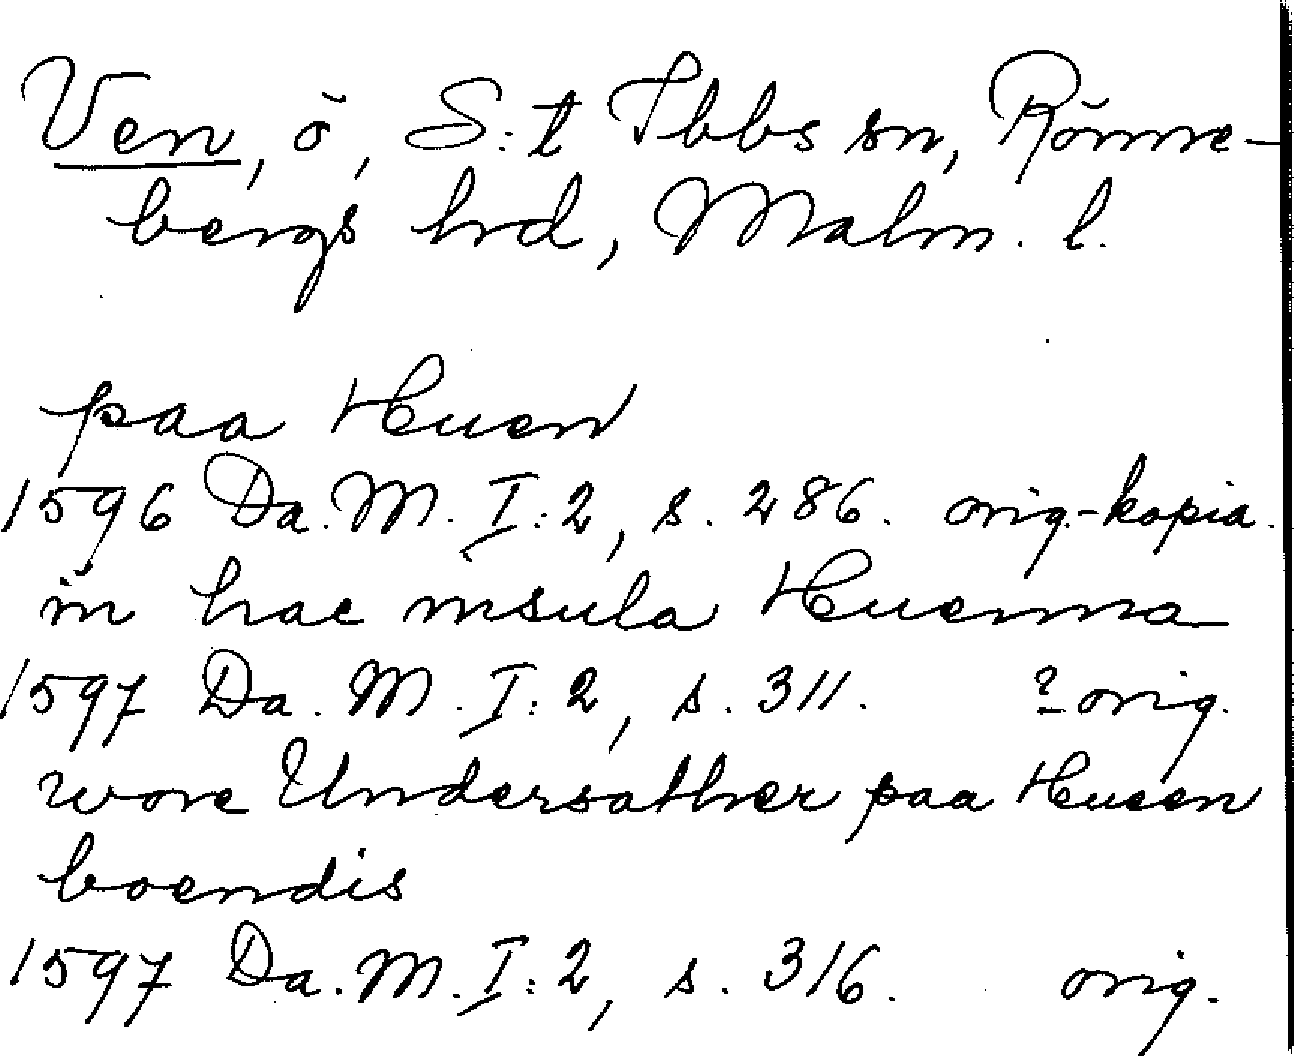 Ven, ö, S:t Ibbs sn, Rönne-
bergs hrd, Malm. l.
paa Huen
1596 Da. M. I:2, s. 286. orig.-kopia.
in hac insula Huenna
1597 Da. M. I:2, s. 311. ? orig.
wore Undersather paa Hueen
boendis
1597 Da. M. I:2, s. 316. orig.